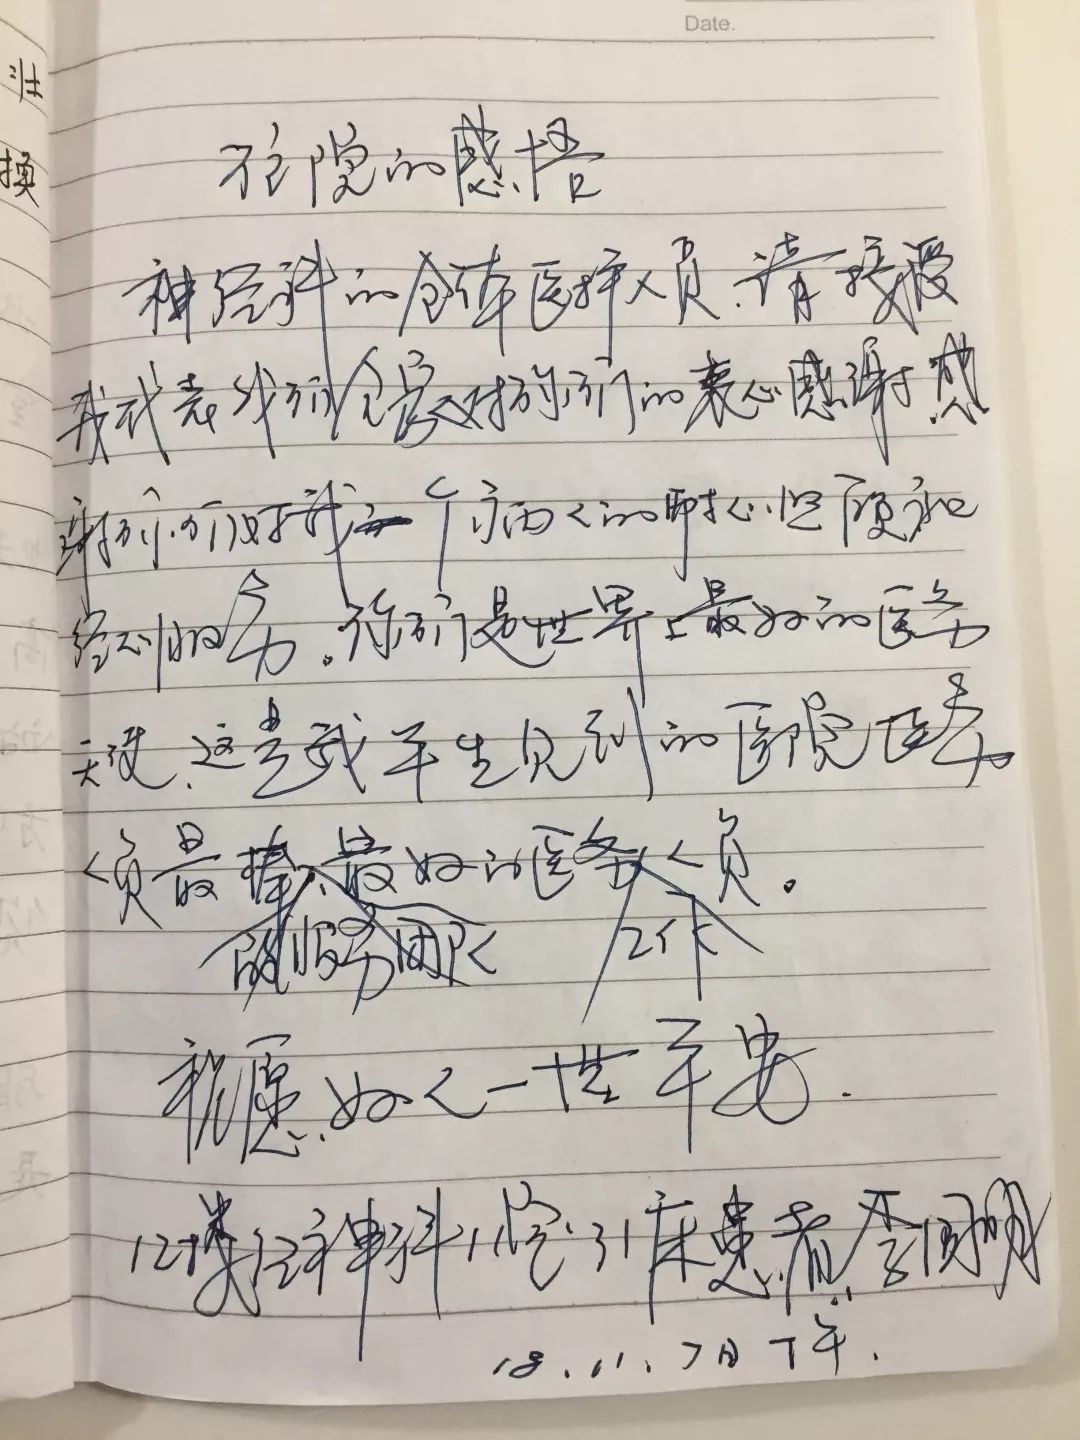 Date.
壮
换
住院的感悟
神经科的全体医护人员、请接授
我代表我们全家对你们的衷心感谢、感
谢你们对我一个病人的耐心照顾和
服务。你们是世界上最好的医务
天使、这是我平生见到的医院医务
人员最棒、最好的医务人员。
的服务团队 工作
祝愿好人一世平安.
12楼12神科 31床患者 李国明
18.11.7日下午.